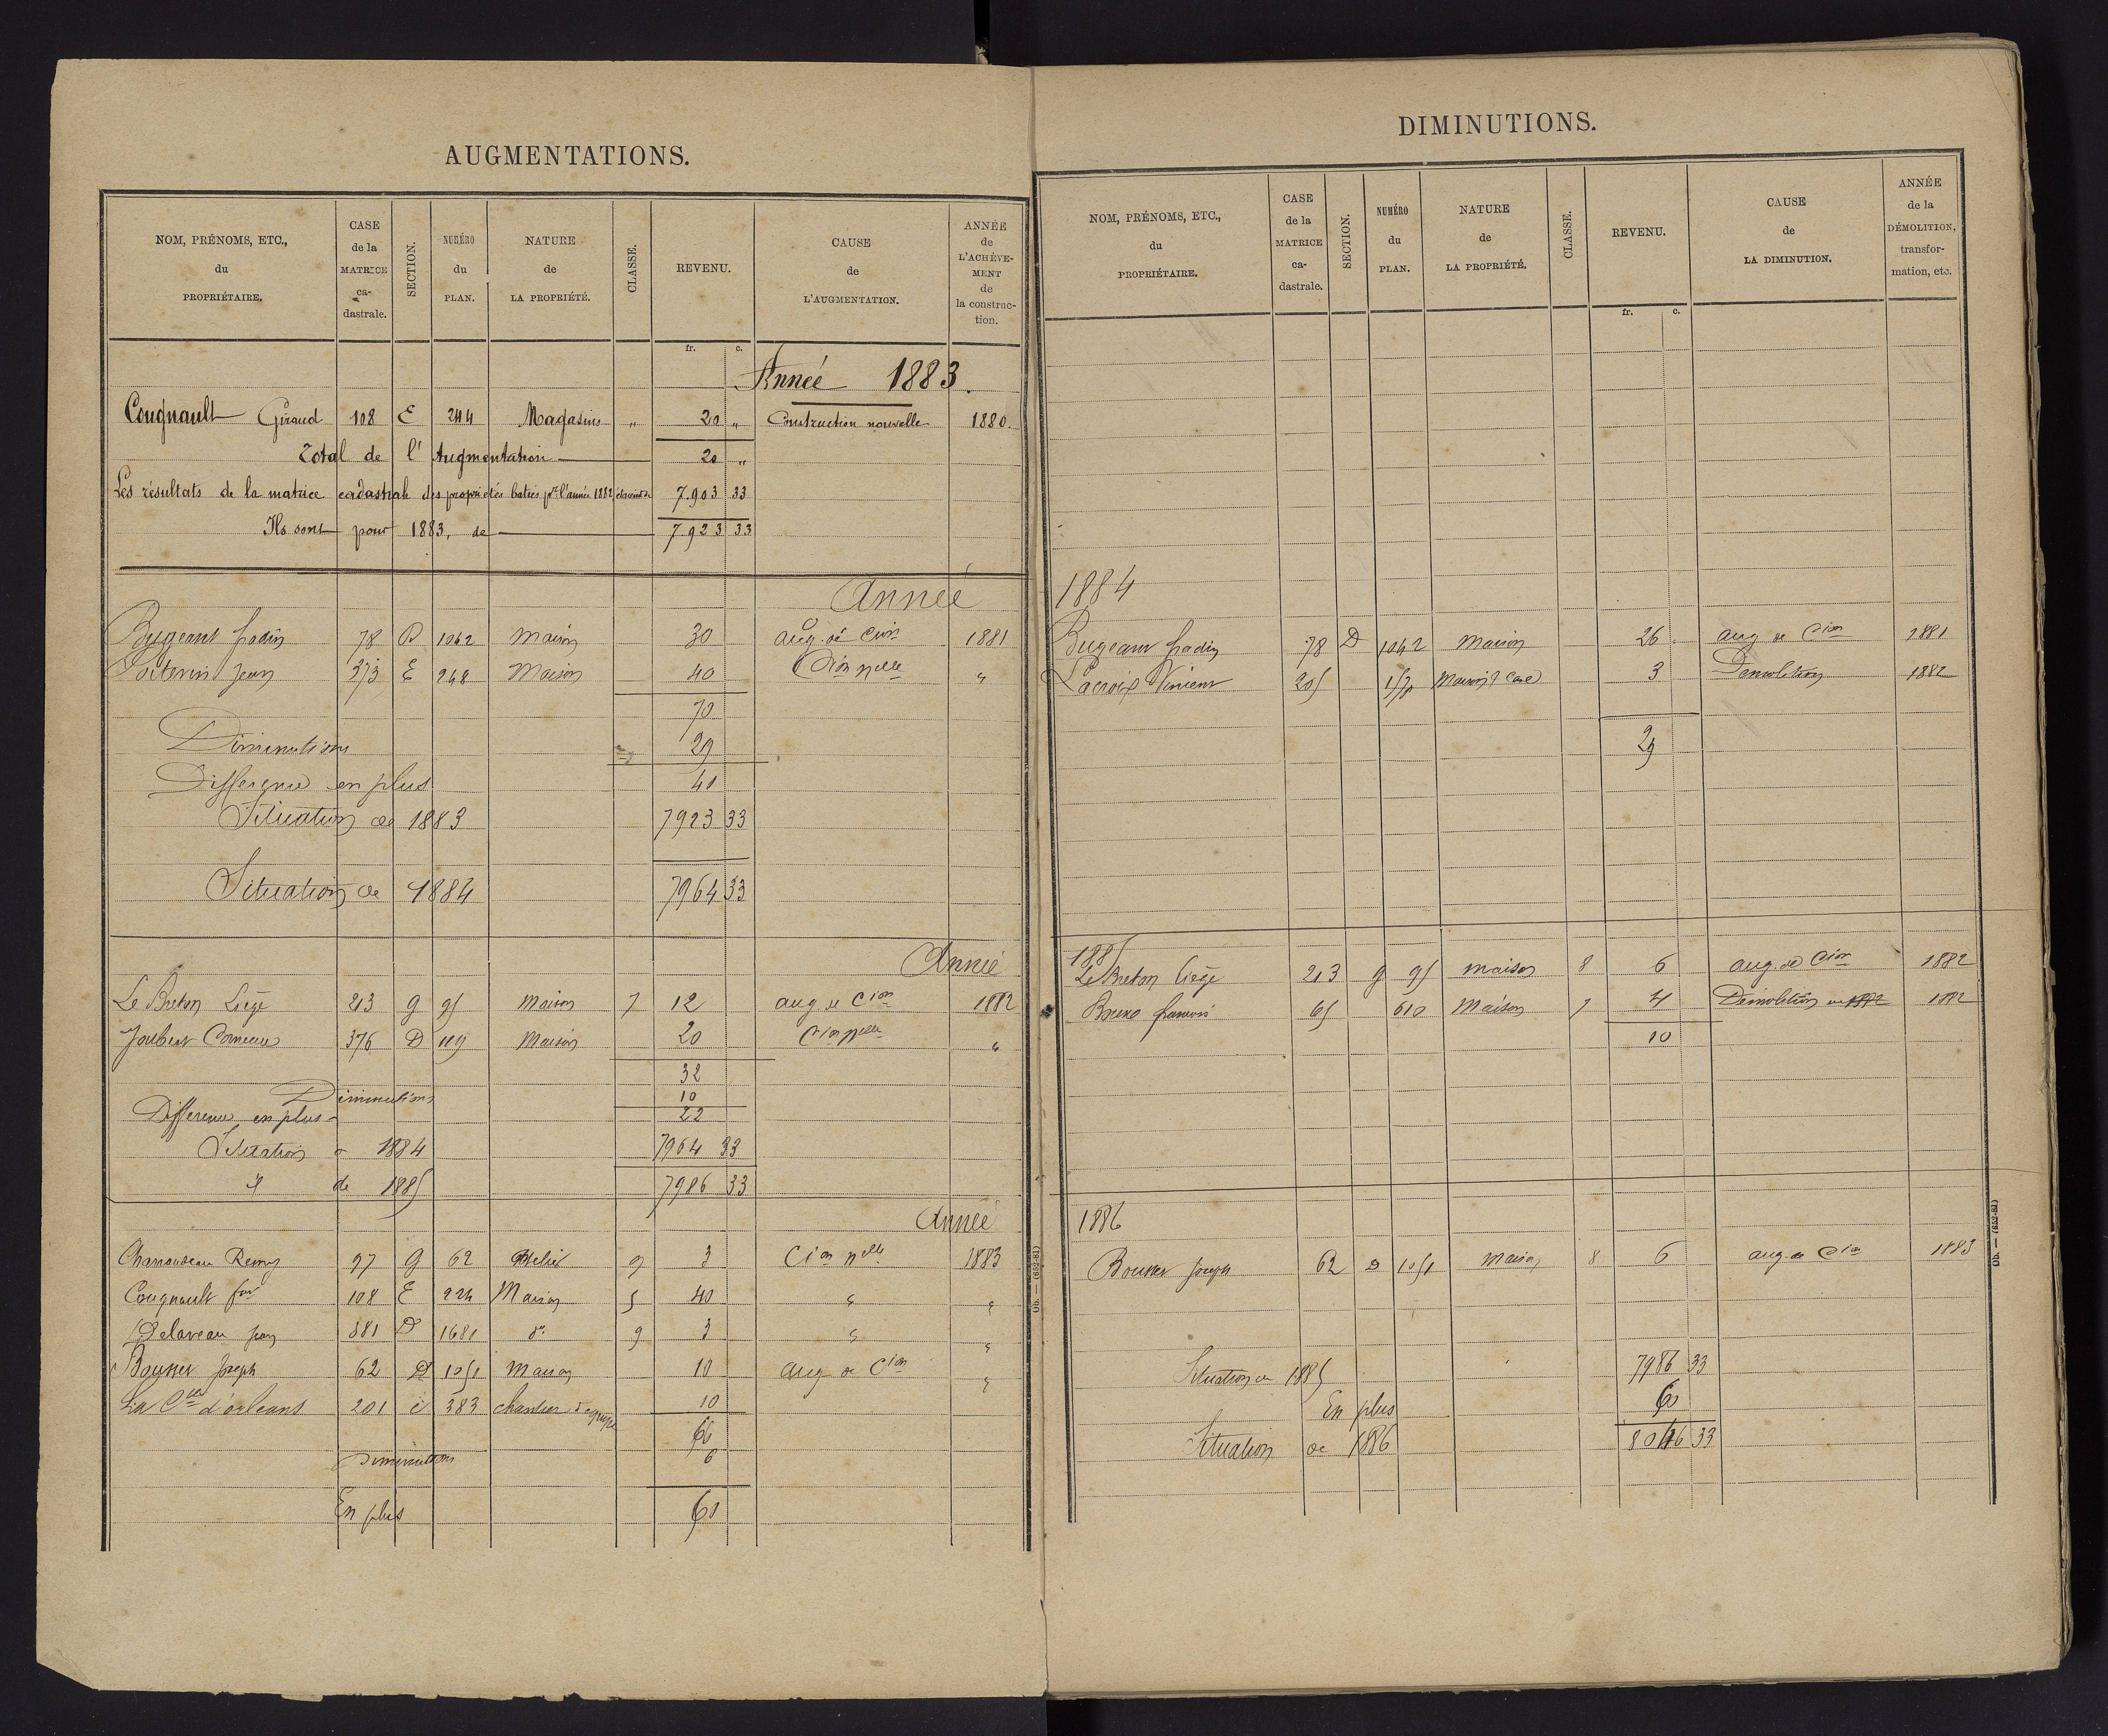 AUGMENTATIONS.
NOM, PRÉNOMS, ETC., du PROPRIÉTAIRE.
CASE de la MATRICE ca- dastrale.
SECTION.
NUMÉRO du PLAN.
NATURE de LA PROPRIÉTÉ.
CLASSE.
REVENU.
CAUSE de L'AUGMENTATION.
ANNÉE de L'ACHÈVE- MENT de la construc- tion.
fr. c.
Année 1883.
Cougnault Giraud 108 E 244 Magasins „ 20 „ Construction nouvelle 1880.
Total de l'Augmentation 20 „
Les résultats de la matrice cadastrale des propriétés baties pr l'année 1882 étaient de 7.903 33
Ils sont pour 1883, de 7.923 33
Année
Bugeant fradin 78 D 1042 Maison 30 aug. de Cion 1881
Poitevin Jean 373 E 248 Maison 40 Cion nelle "
70
Diminutions 29
Difference en plus 41
Situation de 1883 7923 33
Situation de 1884 7964 33
Année
Le Breton Liège 213 g 95 Maison 7 12 aug. de Cion 1882
Joubert 376 D 119 Maison 20 Cion nelle "
32
Diminutions 10
Difference en plus 22
Situation 1884 7964 33
" de 1885 7986 33
Année
Remy 97 g 62 Atelier 9 3 Cion nelle 1883
Cougnault 108 E 224 Maison 5 40 " "
Delaveau Jean 381 D 1681 do 9 3 " "
Joseph 62 D 1051 Maison 10 aug de Cion "
La Cie d'orléans 201 c 383 chantier 10
66
Diminutions 6
En plus 60
Ob. — (652-81)
DIMINUTIONS.
NOM, PRÉNOMS, ETC., du PROPRIÉTAIRE.
CASE de la MATRICE ca- dastrale.
SECTION.
NUMÉRO du PLAN.
NATURE de LA PROPRIÉTÉ.
CLASSE.
REVENU.
CAUSE de LA DIMINUTION.
ANNÉE de la DÉMOLITION, transfor- mation, etc.
fr. c.
1884
Bugeant fradin 78 D 1042 Maison 26 aug de Cion 1881
Lacroix Vincent 205 1570 Maison 3 Demolition 1882
29
1885
Le Breton Liège 213 g 95 maison 8 6 aug. de Cion 1882
65 610 Maison 7 4 Démolition en 1882 1882
10
1886
Joseph 62 D 1051 Maison 8 6 aug. de Cion 1883
Situation de 1885 7986 33
En plus 60
Situation de 1886 8046 33
Ob. — (652-81)